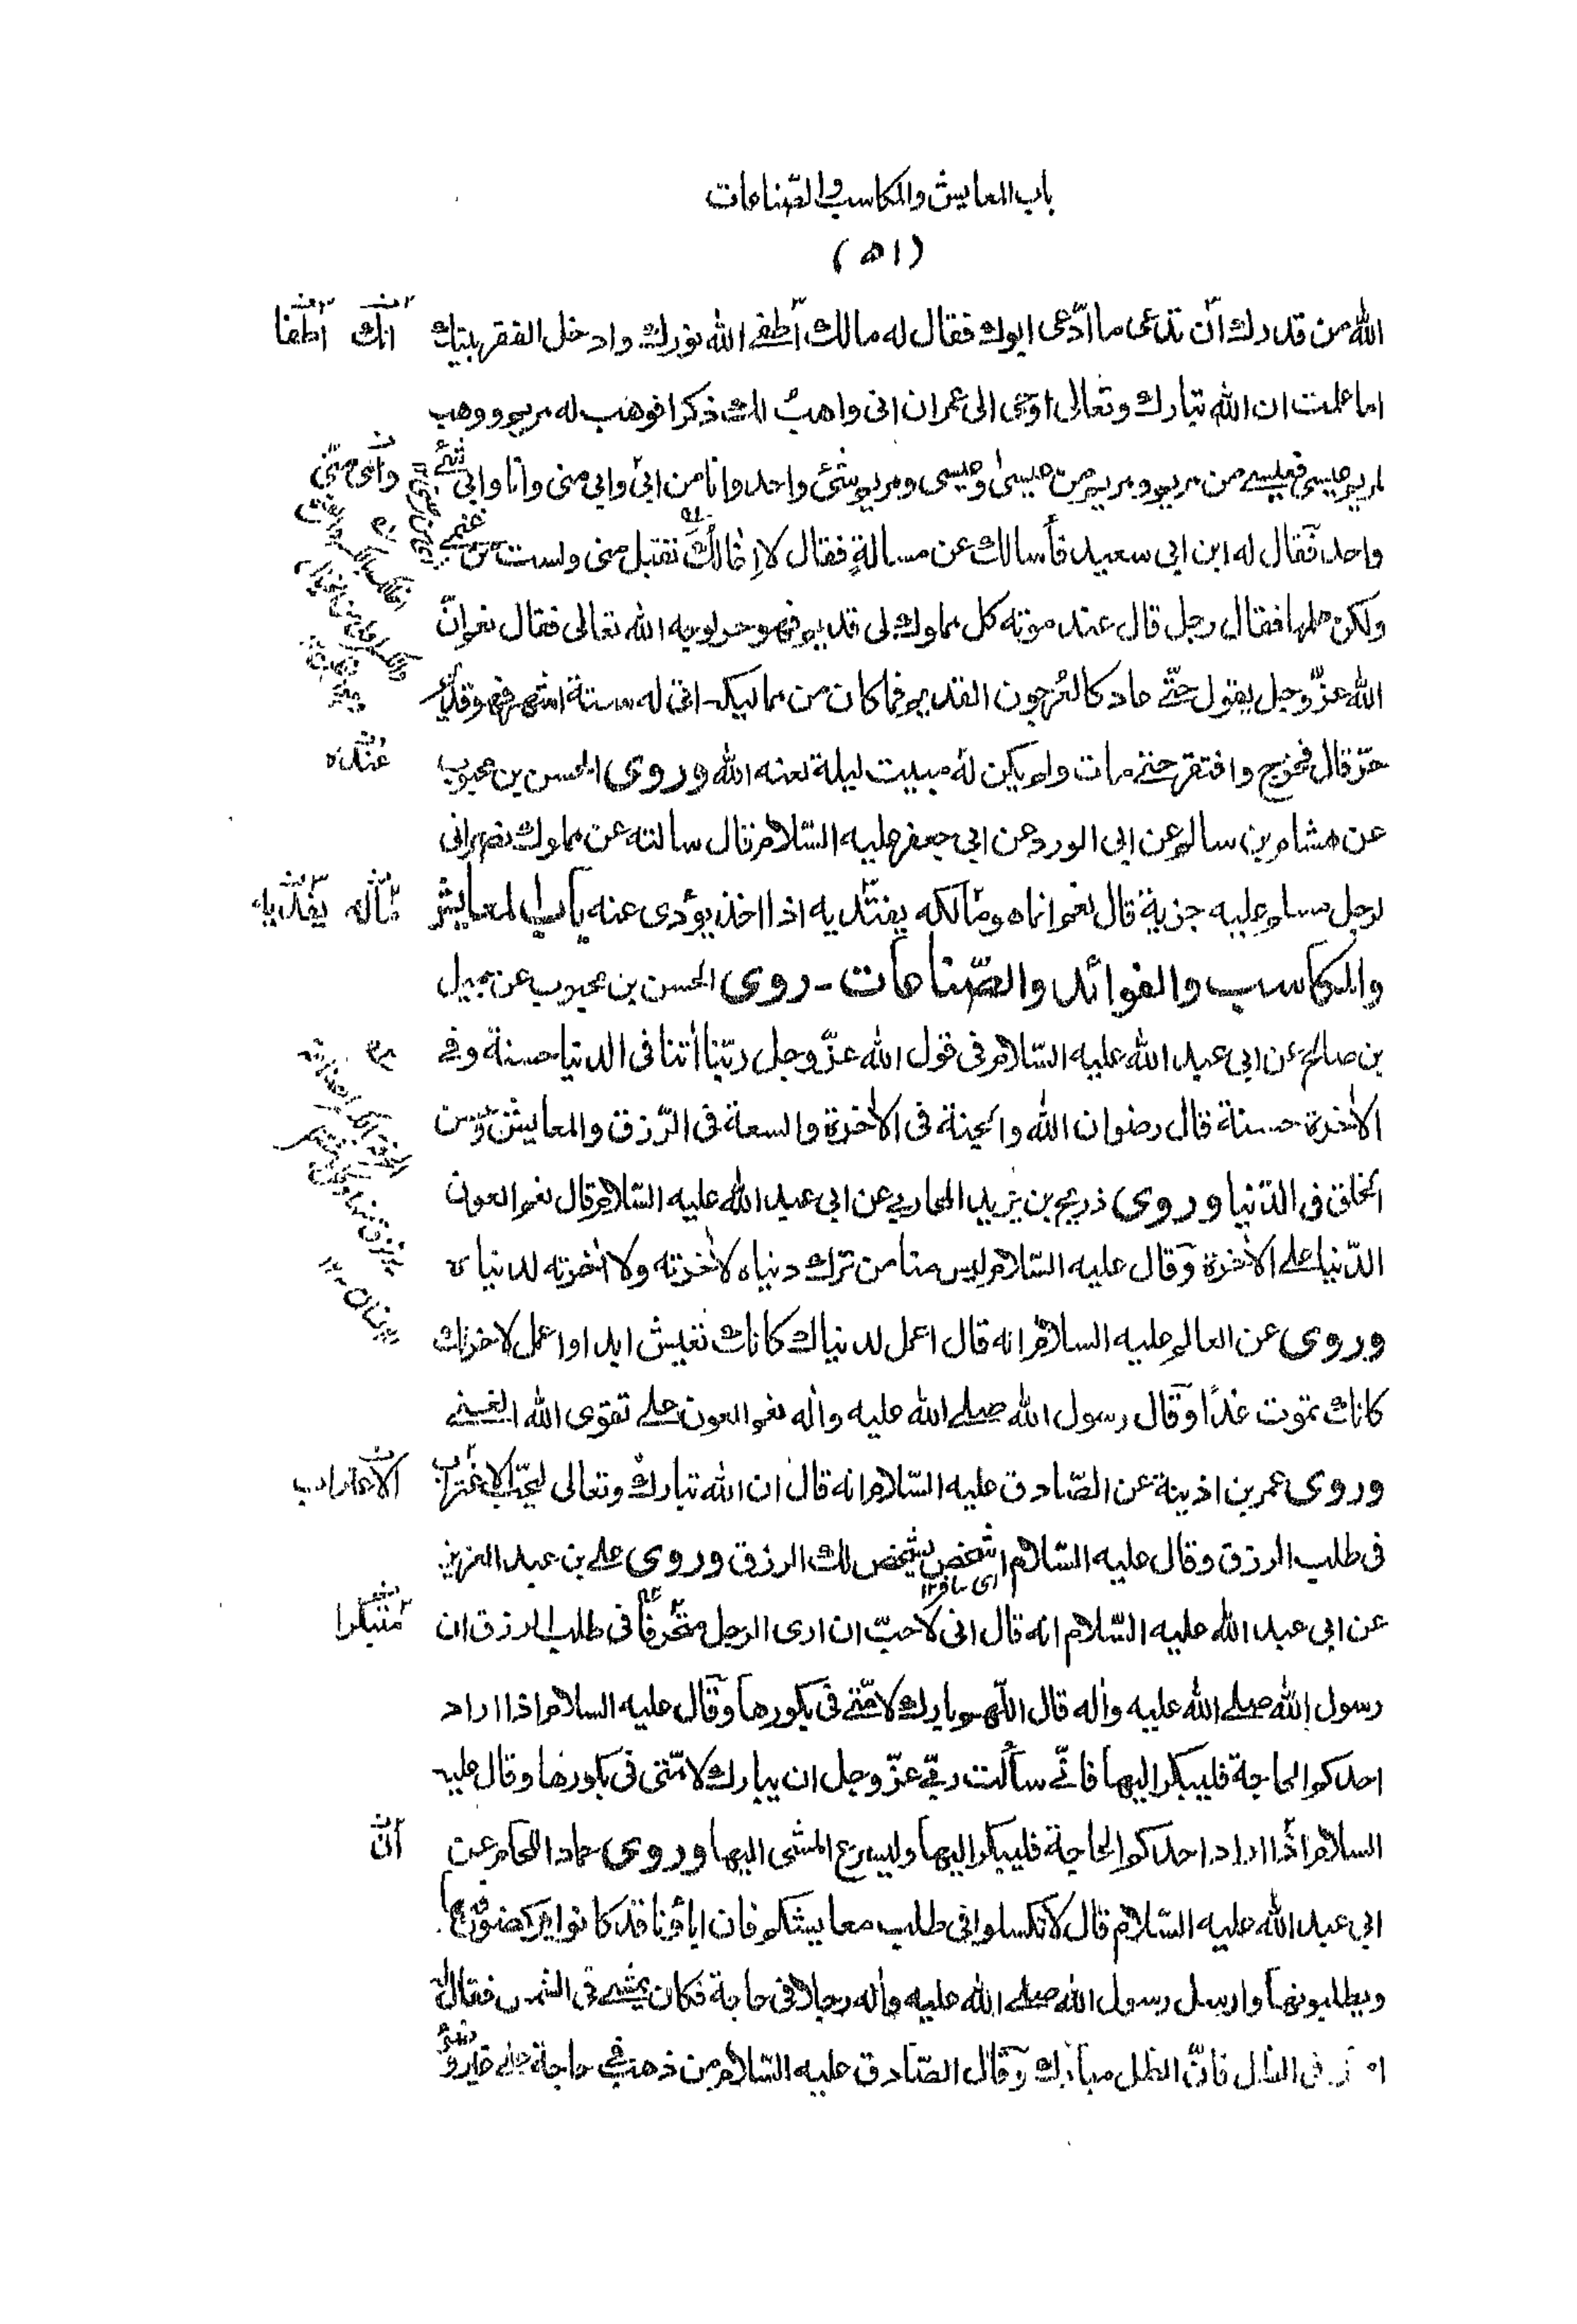 باب المعايش والمكاسب والصّناعات
(٥١)
الله من قدرك ان تدعى ما ادّعى ابوك فقال له مالك اطفى الله نورك وادخل الفقر بيتك
انك اطفا
اما علمت ان الله تبارك وتعالى اوحى الى عمران انى واهب لك ذكرا فوهب له مريم ووهب
لمريم عيسى فعيسى من مريم ومريم من عيسىٰ وعيسى ومريم شئ واحد وانا من ابىّ وابى منى وانا وابى شئ
وابى منّى
واحد فقال له ابن ابى سعيد فأسالك عن مسالةٍ فقال لا اخالك تقبل منى ولست من غنمى
ولكن هلمها فقال رجل قال عند موته كل مملوك لى قديم فهو حر لوجه الله تعالى فقال نعم انّ
الله عزّ وجل يقول حتّى عاد كالعُرجون القديم فما كان من مماليكه اتى له ستة اشهر فهو قديم
حرّ قال فخرج وافتقر حتى مات ولم يكن لهُ مبيت ليلة لعنه الله وروى الحسن بن محبوب
عندَه
عن هشام بن سالم عن ابى الورد عن ابى جعفر عليه السّلام قال سالته عن مملوك نصرانى
لرجل مسلم عليه جزية قال نعم انما هو مالكه يفتديه اذا اخذ يؤدى عنه باب المعايش
ماله
والمكاسب والفوائد والصّناعات - روى الحسن بن محبوب عن جميل
بن صالح عن ابى عبد الله عليه السّلام فى قول الله عزّ وجل ربّنا اٰتنا فى الدنيا حسنة وفى
الاٰخرة حسنة قال رضوان الله والجنة فى الاٰخرة والسعة فى الرّزق والمعايش وحسن
الخلق فى الدّنيا وروى ذريح بن يزيد المحاربى عن ابى عبد الله عليه السّلام قال نعم العون
الدّنيا على الاٰخرة وقال عليه السّلام ليس منا من ترك دنياه لاٰخرته ولا اٰخرته لدنياه
وروى عن العالم عليه السلام انه قال اعمل لدنياك كانك تعيش ابدا واعمل لاخرتك
كانك تموت غدًا وقال رسول الله صلى الله عليه واٰله نعم العون على تقوى الله الغنى
وروى عمر بن اذينة عن الصّادق عليه السّلام انه قال ان الله تبارك وتعالى ليحبّ الاغتراب
فى طلب الرزق وقال عليه السّلام اشخص يشخص لك الرزق وروى على بن عبد العزيز
اى سافر ١٢
عن ابى عبد الله عليه السّلام انه قال انى لاحبّ ان ارى الرجل متحرفًا فى طلب الرزق ان
متبكرا
رسول الله صلى الله عليه واٰله قال اللّٰهم بارك لامّتى فى بكورها وقال عليه السلام اذا اراد
احدكم الحاجة فليبكر اليها فانّى سألت ربّى عزّ وجل ان يبارك لامّتى فى بكورها وقال عليه
السلام اذا اراد احدكم الحاجة فليبكر اليها وليسرع المشى اليها وروى حماد اللحام عن
انّ
ابى عبد الله عليه السّلام قال لا تكسلوا فى طلب معايشكم فان اباؤنا قد كانوا يركضون فيها
ويطلبونها وارسل رسول الله صلى الله عليه واٰله رجلا فى حاجة فكان يمشى فى الشمس فقال له
فى الظل فانّ الظل مبارك وقال الصّادق عليه السّلام من ذهب فى حاجة على غير وضوء